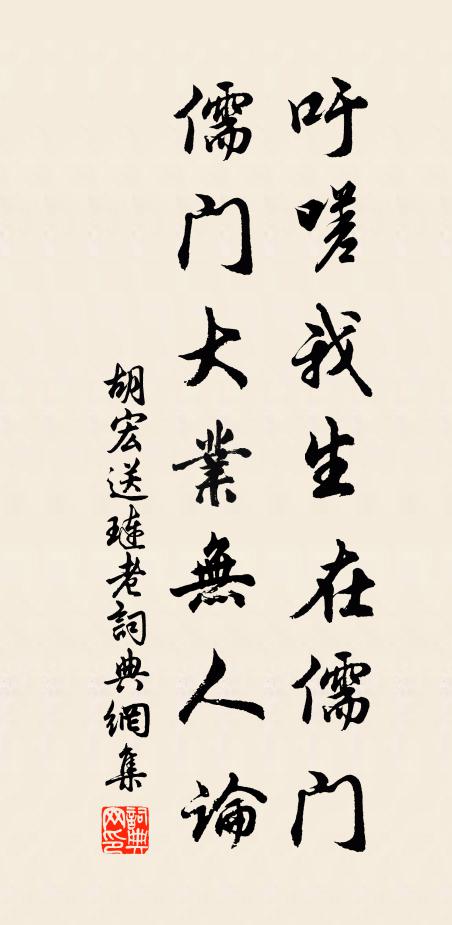 吁嗟我生在儒门
儒门大業無人論
胡宏送璉老詞典網集
詞典网印